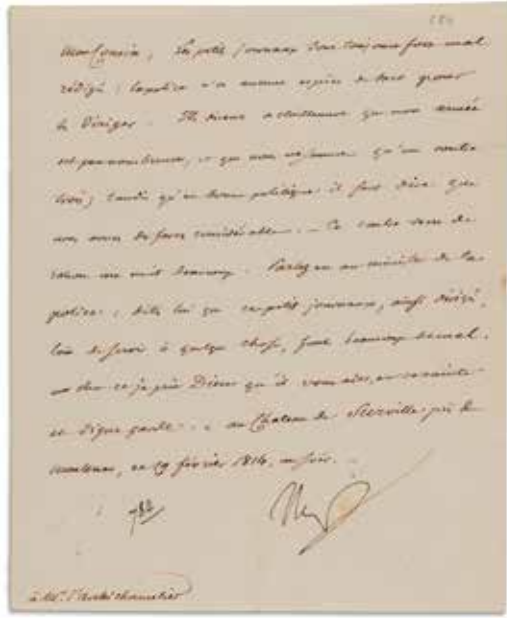 Mon Cousin, les petits journaux sont toujours fort mal
rédigés ; la police n'a aucune espèce de tact pour
les diriger. Ils disent actuellement que mon armée
est peu nombreuse, et que nous ne sommes qu'un contre
trois ; tandis qu'en bonne politique il faut dire que
nous avons des forces considérables. - Ce contre sens de
raison me nuit beaucoup. Parlez en au ministre de la
police ; dites lui que ces petits journaux, ainsi dirigés,
loin de servir à quelque chose, font beaucoup de mal.
sur ce je prie Dieu qu'il vous aie, en sa sainte
et digne garde. - au Chateau de Surville près de
montereau, ce 19 février 1814, au soir.
Nap
à Mr. l'archichancelier